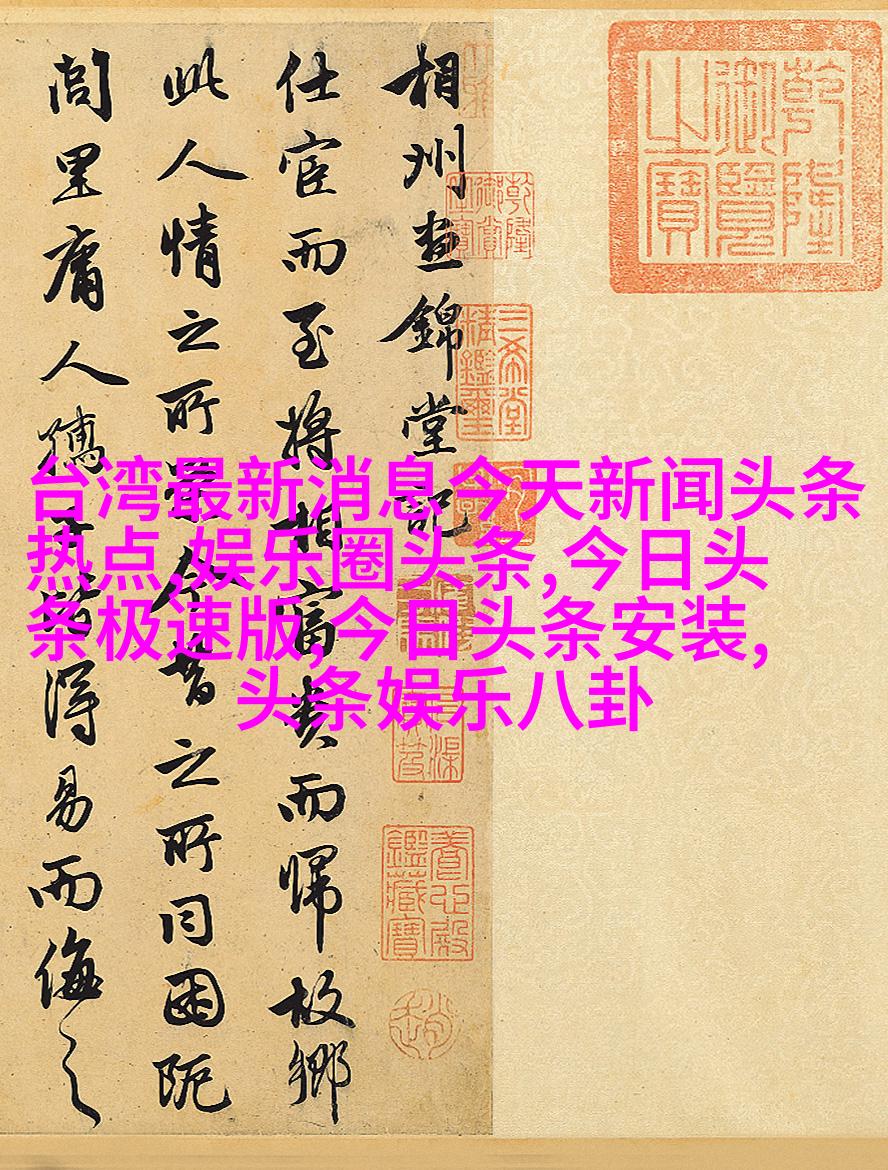 乾隆御覽之寶
相州晝錦堂記
仕宦而至將相富貴而歸故鄉
此人情之所榮今昔之所同困阨
閭里庸人孺子皆得易而侮之
三希堂精鑑璽
養心殿鑑藏寶
台湾最新消息今天新闻头条
热点,娱乐圈头条,今日头
条极速版,今日头条安装,
头条娱乐八卦